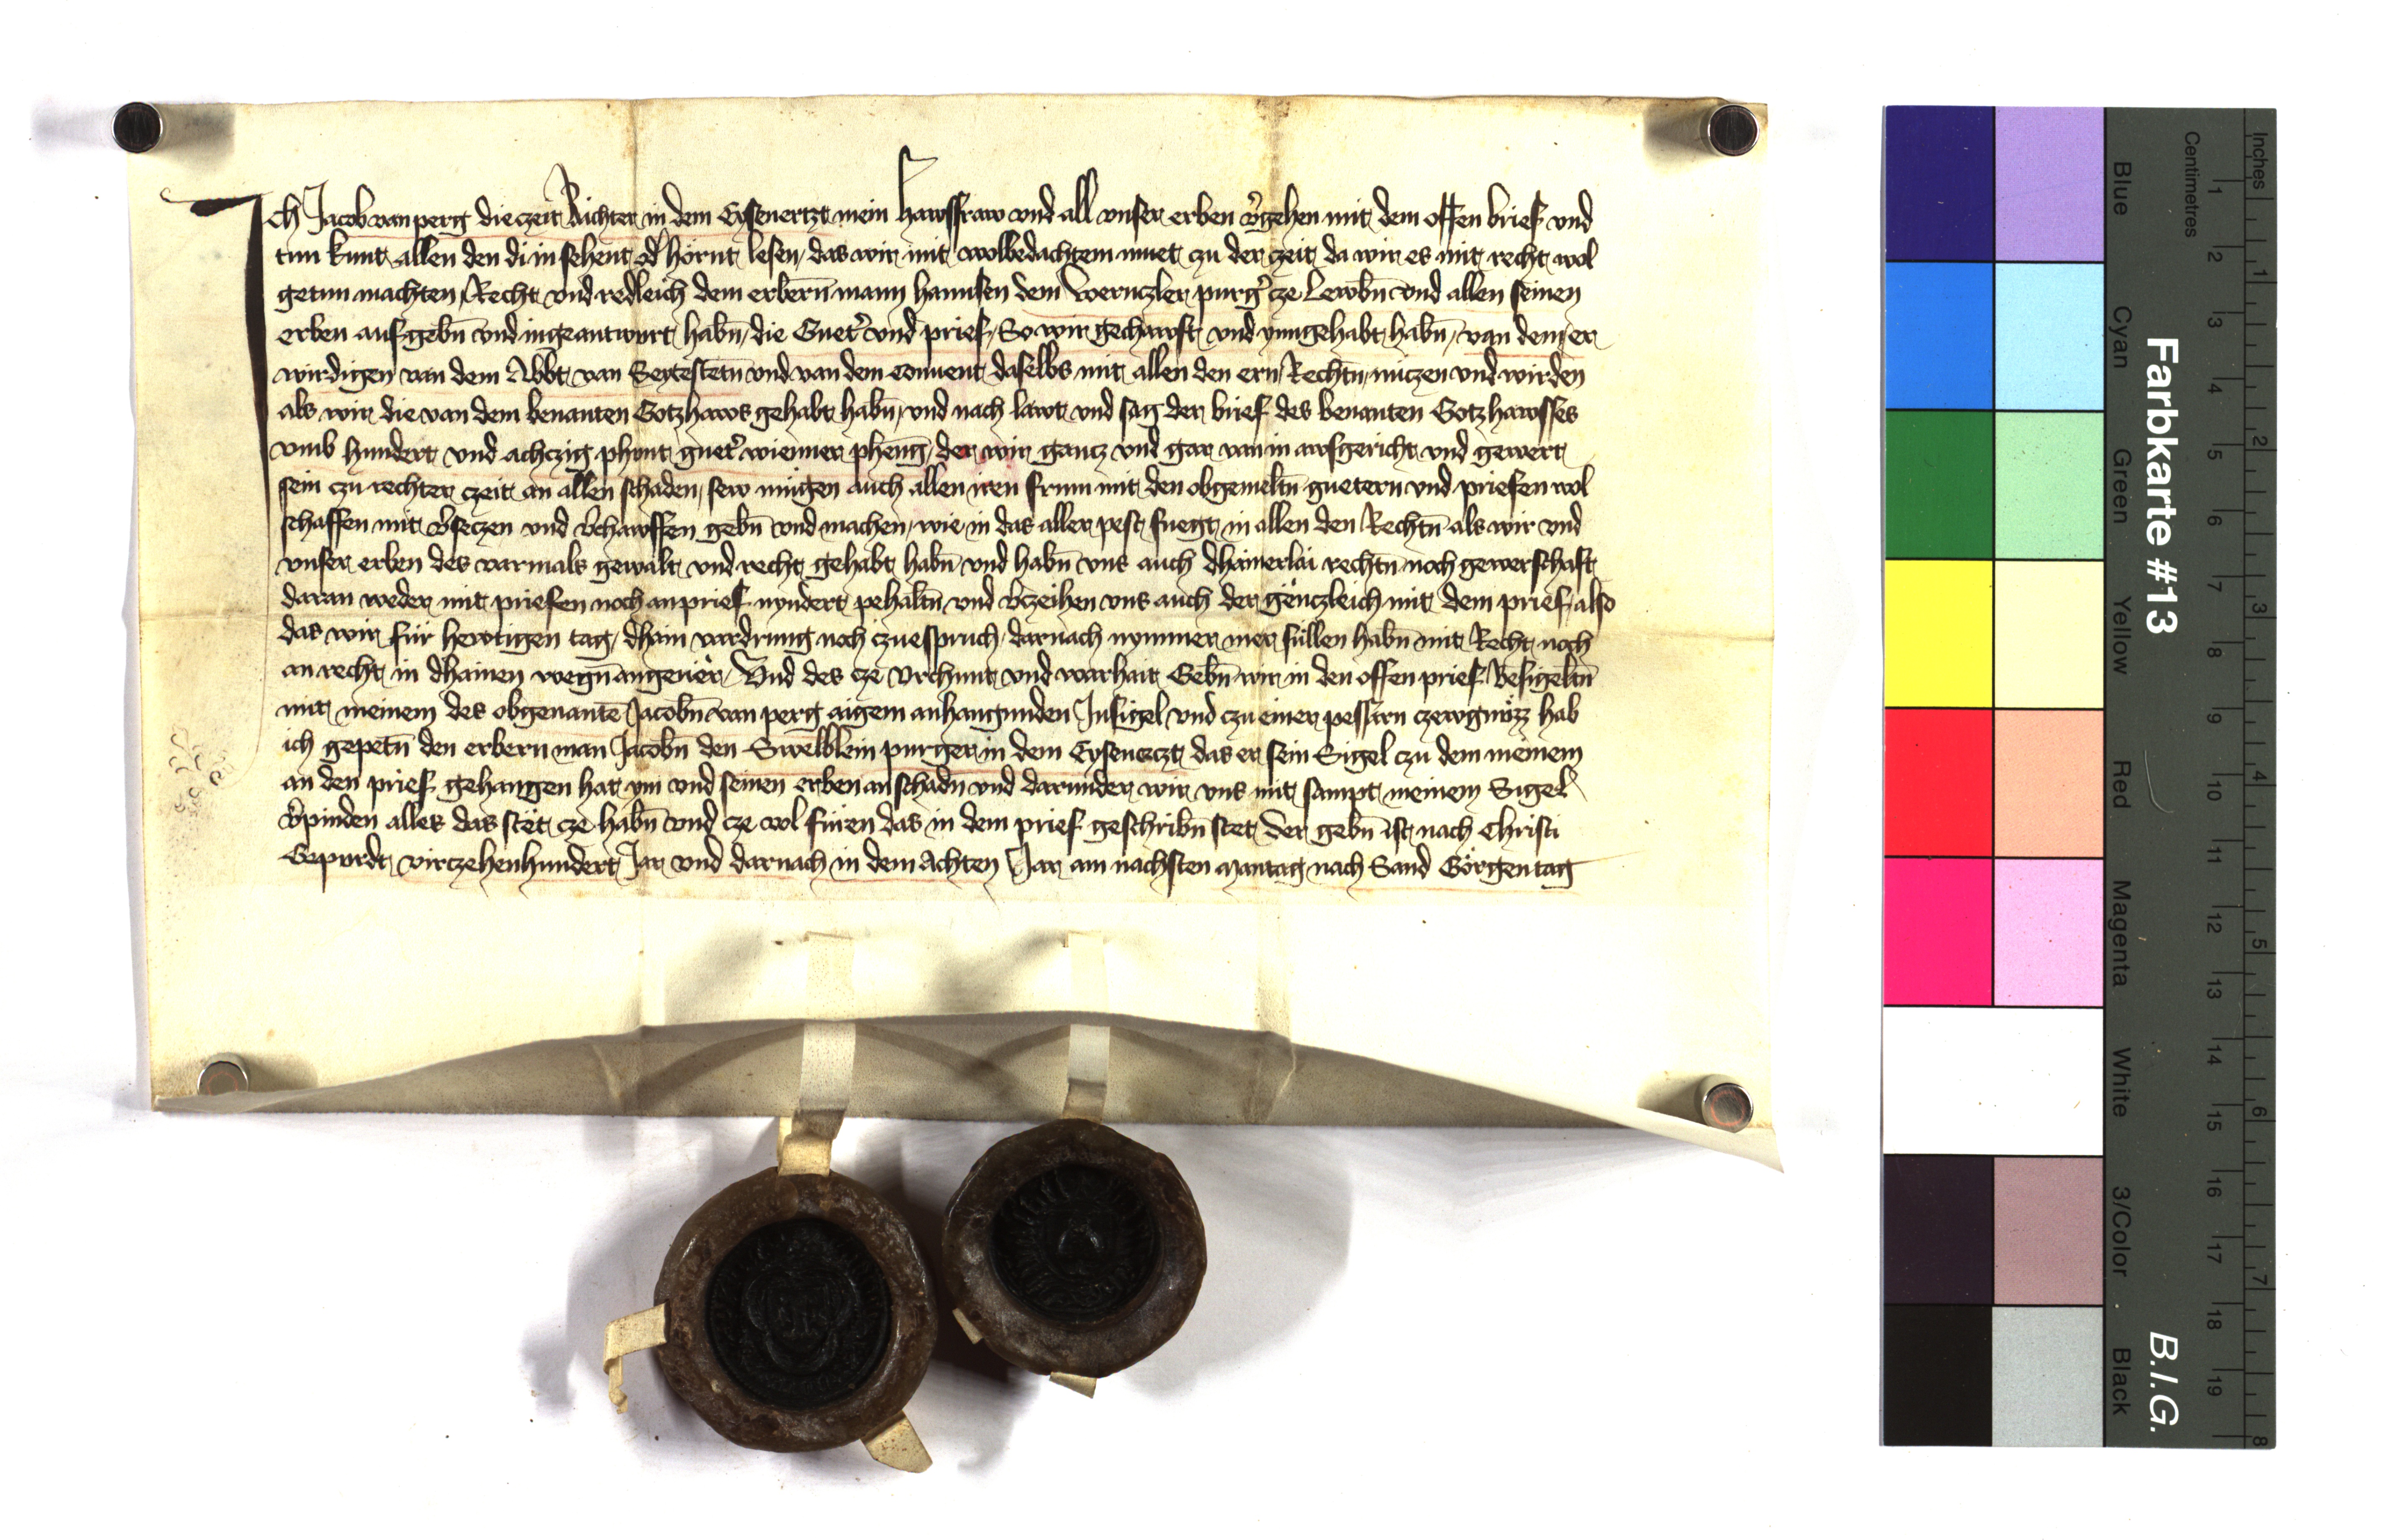 Ich Jacob van perg die zeit Richter in dem Eysenertzt mein hawsfraw vnd all vnser erben v̾gehen mit dem offen brief vnd
tun kunt allen den di in sehent od̾ hornt lesen das wir mit wolbedachtem muet zu der zeit da wir es mit recht wol
getun machten Recht vnd redleich dem erbern̄ mann hannsen dem wernczler purg̾ cze Lewbn̄ vnd allen seinen
erben aufgebn̄ vnd ingeantwurt habn̄ die Guet̾ vnd prief So wir gechawft vnd ynngehabt habn̄ van dem er
wirdigen van dem Abbt van Seytestetn̄ vnd van dem conuent daselbs mit allen den ern Rechtn̄ nuczen vnd wirden
als wir die van dem benanten Gotzhaws gehabt habn̄ vnd nach lawt vnd sag der brief des benanten Gotzhawsses
vmb hundert vnd achczig phunt guet̾ wienner phēng der wir gancz vnd gar van in awsgericht vnd gewert
sein czu rechter czeit an allen schaden sew mugen auch allen iren frum mit den obgemeltn̄ guetern vnd priefen wol
schaffen mit v̾seczen vnd v̾chawffen gebn̄ vnd machen wie in das aller pest fuegt in allen den Rechtn̄ als wir vnd
vnser erben des varmals gewalt vnd recht gehabt habn̄ vnd habn̄ vns auch dhainerlai rechtn̄ noch gewerschaft
daran weder mit priefen noch an prief nyndert pehaltn̄ vnd v̾czeihen vns auch der genczleich mit dem prief also
das wir fur hewtigen tag dhain vardrung noch czuespruch darnach nymmer mer sullen habn̄ mit Recht noch
an recht in dhainen wegn̄ angeuer Vnd des cze vrchunt vnd warhait Gebn̄ wir in den offen prief Besigeltn̄
mit meinem des obgenantē Jacobn̄ van perg aigem anhangunden Insigel vnd czu einer pessārn czewgnözz hab
ich gepetn̄ den erbern man Jacobn̄ den Swelblein purger in dem Eysenerczt das er sein Sigel czu dem meinem
an den prief gehangen hat ym vnd seinen erben an schadn̄ vnd darunder wir vns mit sampt meinem Sigel
v̾pinden alles das stet cze habn̄ vnd cze wol füren das in dem prief geschribn̄ stet Der gebn̄ ist nach Christi
Gepurdt virczehenhundert Jar vnd darnach in dem Achten Jar am nachsten Mantag nach Sand Görgen tag
Farbkarte #13
B.I.G.
Blue Cyan Green Yellow Red Magenta White 3/Color Black
Centimetres
1 2 3 4 5 6 7 8 9 10 11 12 13 14 15 16 17 18 19
Inches
1 2 3 4 5 6 7 8